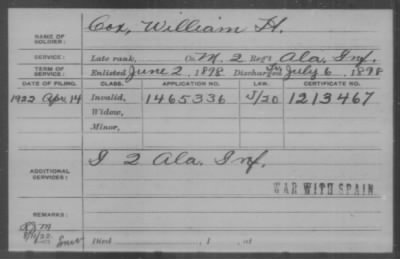 NAME OF SOLDIER: Cox, William H.
SERVICE: Late rank, Co. M. 2 Reg't Ala. Inf.
TERM OF SERVICE: Enlisted June 2, 1898 Discharged July 6, 1898
DATE OF FILING. CLASS. APPLICATION NO. LAW. CERTIFICATE NO.
1922 Apr. 14 Invalid, 1465336 J/20 1213467
Widow,
Minor,
ADDITIONAL SERVICES: I 2 Ala. Inf.
WAR WITH SPAIN
REMARKS:
Died , 1 , at